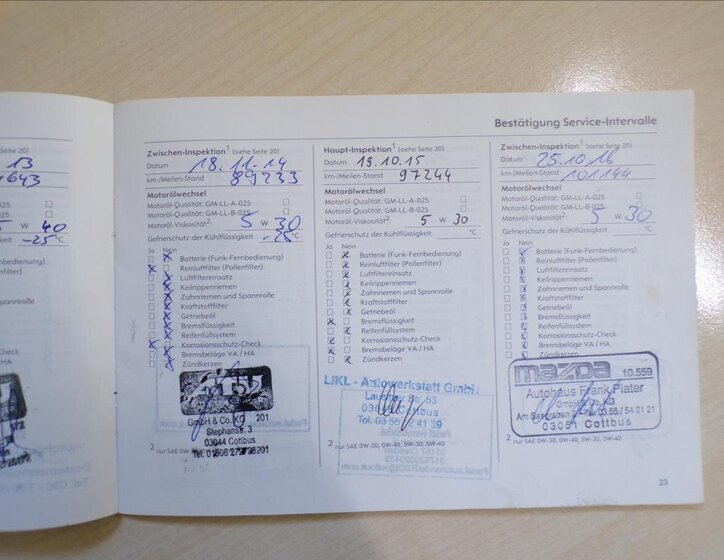 Bestätigung Service-Intervalle
13
1643
W 40
-25 °C
Zwischen-Inspektion¹ (siehe Seite 20)
Datum 18.11.14
km-/Meilen-Stand 89233
Motorölwechsel
Motoröl-Qualität: GM-LL-A-025
Motoröl-Qualität: GM-LL-B-025
Motoröl-Viskosität²: 5 W 30
Gefrierschutz der Kühlflüssigkeit -25 °C
Ja Nein
Batterie (Funk-Fernbedienung)
Reinluftfilter (Pollenfilter)
Luftfiltereinsatz
Keilrippenriemen
Zahnriemen und Spannrolle
Kraftstofffilter
Getriebeöl
Bremsflüssigkeit
Reifenfüllsystem
Korrosionsschutz-Check
Bremsbeläge VA / HA
Zündkerzen
GmbH & Co.KG 201
Stephanstr. 3
03044 Cottbus
² nur SAE 0W-30, 0W-40, 5W-30, 5W-40
Haupt-Inspektion¹ (siehe Seite 20)
Datum 19.10.15
km-/Meilen-Stand 97244
Motorölwechsel
Motoröl-Qualität: GM-LL-A-025
Motoröl-Qualität: GM-LL-B-025
Motoröl-Viskosität²: 5 W 30
Gefrierschutz der Kühlflüssigkeit °C
Ja Nein
Batterie (Funk-Fernbedienung)
Reinluftfilter (Pollenfilter)
Luftfiltereinsatz
Keilrippenriemen
Zahnriemen und Spannrolle
Kraftstofffilter
Getriebeöl
Bremsflüssigkeit
Reifenfüllsystem
Korrosionsschutz-Check
Bremsbeläge VA / HA
Zündkerzen
LJKL - Autowerkstatt GmbH
Str. 53
Cottbus
² nur SAE 0W-30, 0W-40, 5W-30, 5W-40
Zwischen-Inspektion¹ (siehe Seite 20)
Datum 25.10.16
km-/Meilen-Stand 101144
Motorölwechsel
Motoröl-Qualität: GM-LL-A-025
Motoröl-Qualität: GM-LL-B-025
Motoröl-Viskosität²: 5 W 30
Gefrierschutz der Kühlflüssigkeit °C
Ja Nein
Batterie (Funk-Fernbedienung)
Reinluftfilter (Pollenfilter)
Luftfiltereinsatz
Keilrippenriemen
Zahnriemen und Spannrolle
Kraftstofffilter
Getriebeöl
Bremsflüssigkeit
Reifenfüllsystem
Korrosionsschutz-Check
Bremsbeläge VA / HA
Zündkerzen
mazda 10.559
Autohaus Frank Plater
GmbH & Co. KG
03 55 / 54 21 21
03051 Cottbus
² nur SAE 0W-30, 0W-40, 5W-30, 5W-40
23